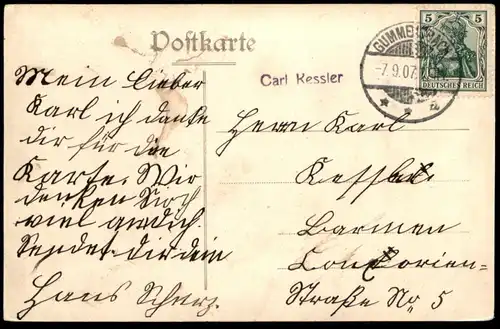 Postkarte
Mein lieber
Karl ich danke
dir für die
Karte. Wir
denken noch
viel an dich.
Sendet dir dein
Hans Scherz.
Carl Kessler
GUMMERSBACH
7.9.07
5 5
DEUTSCHES REICH
Herrn Karl
Kessler
Barmen
Straße No 5